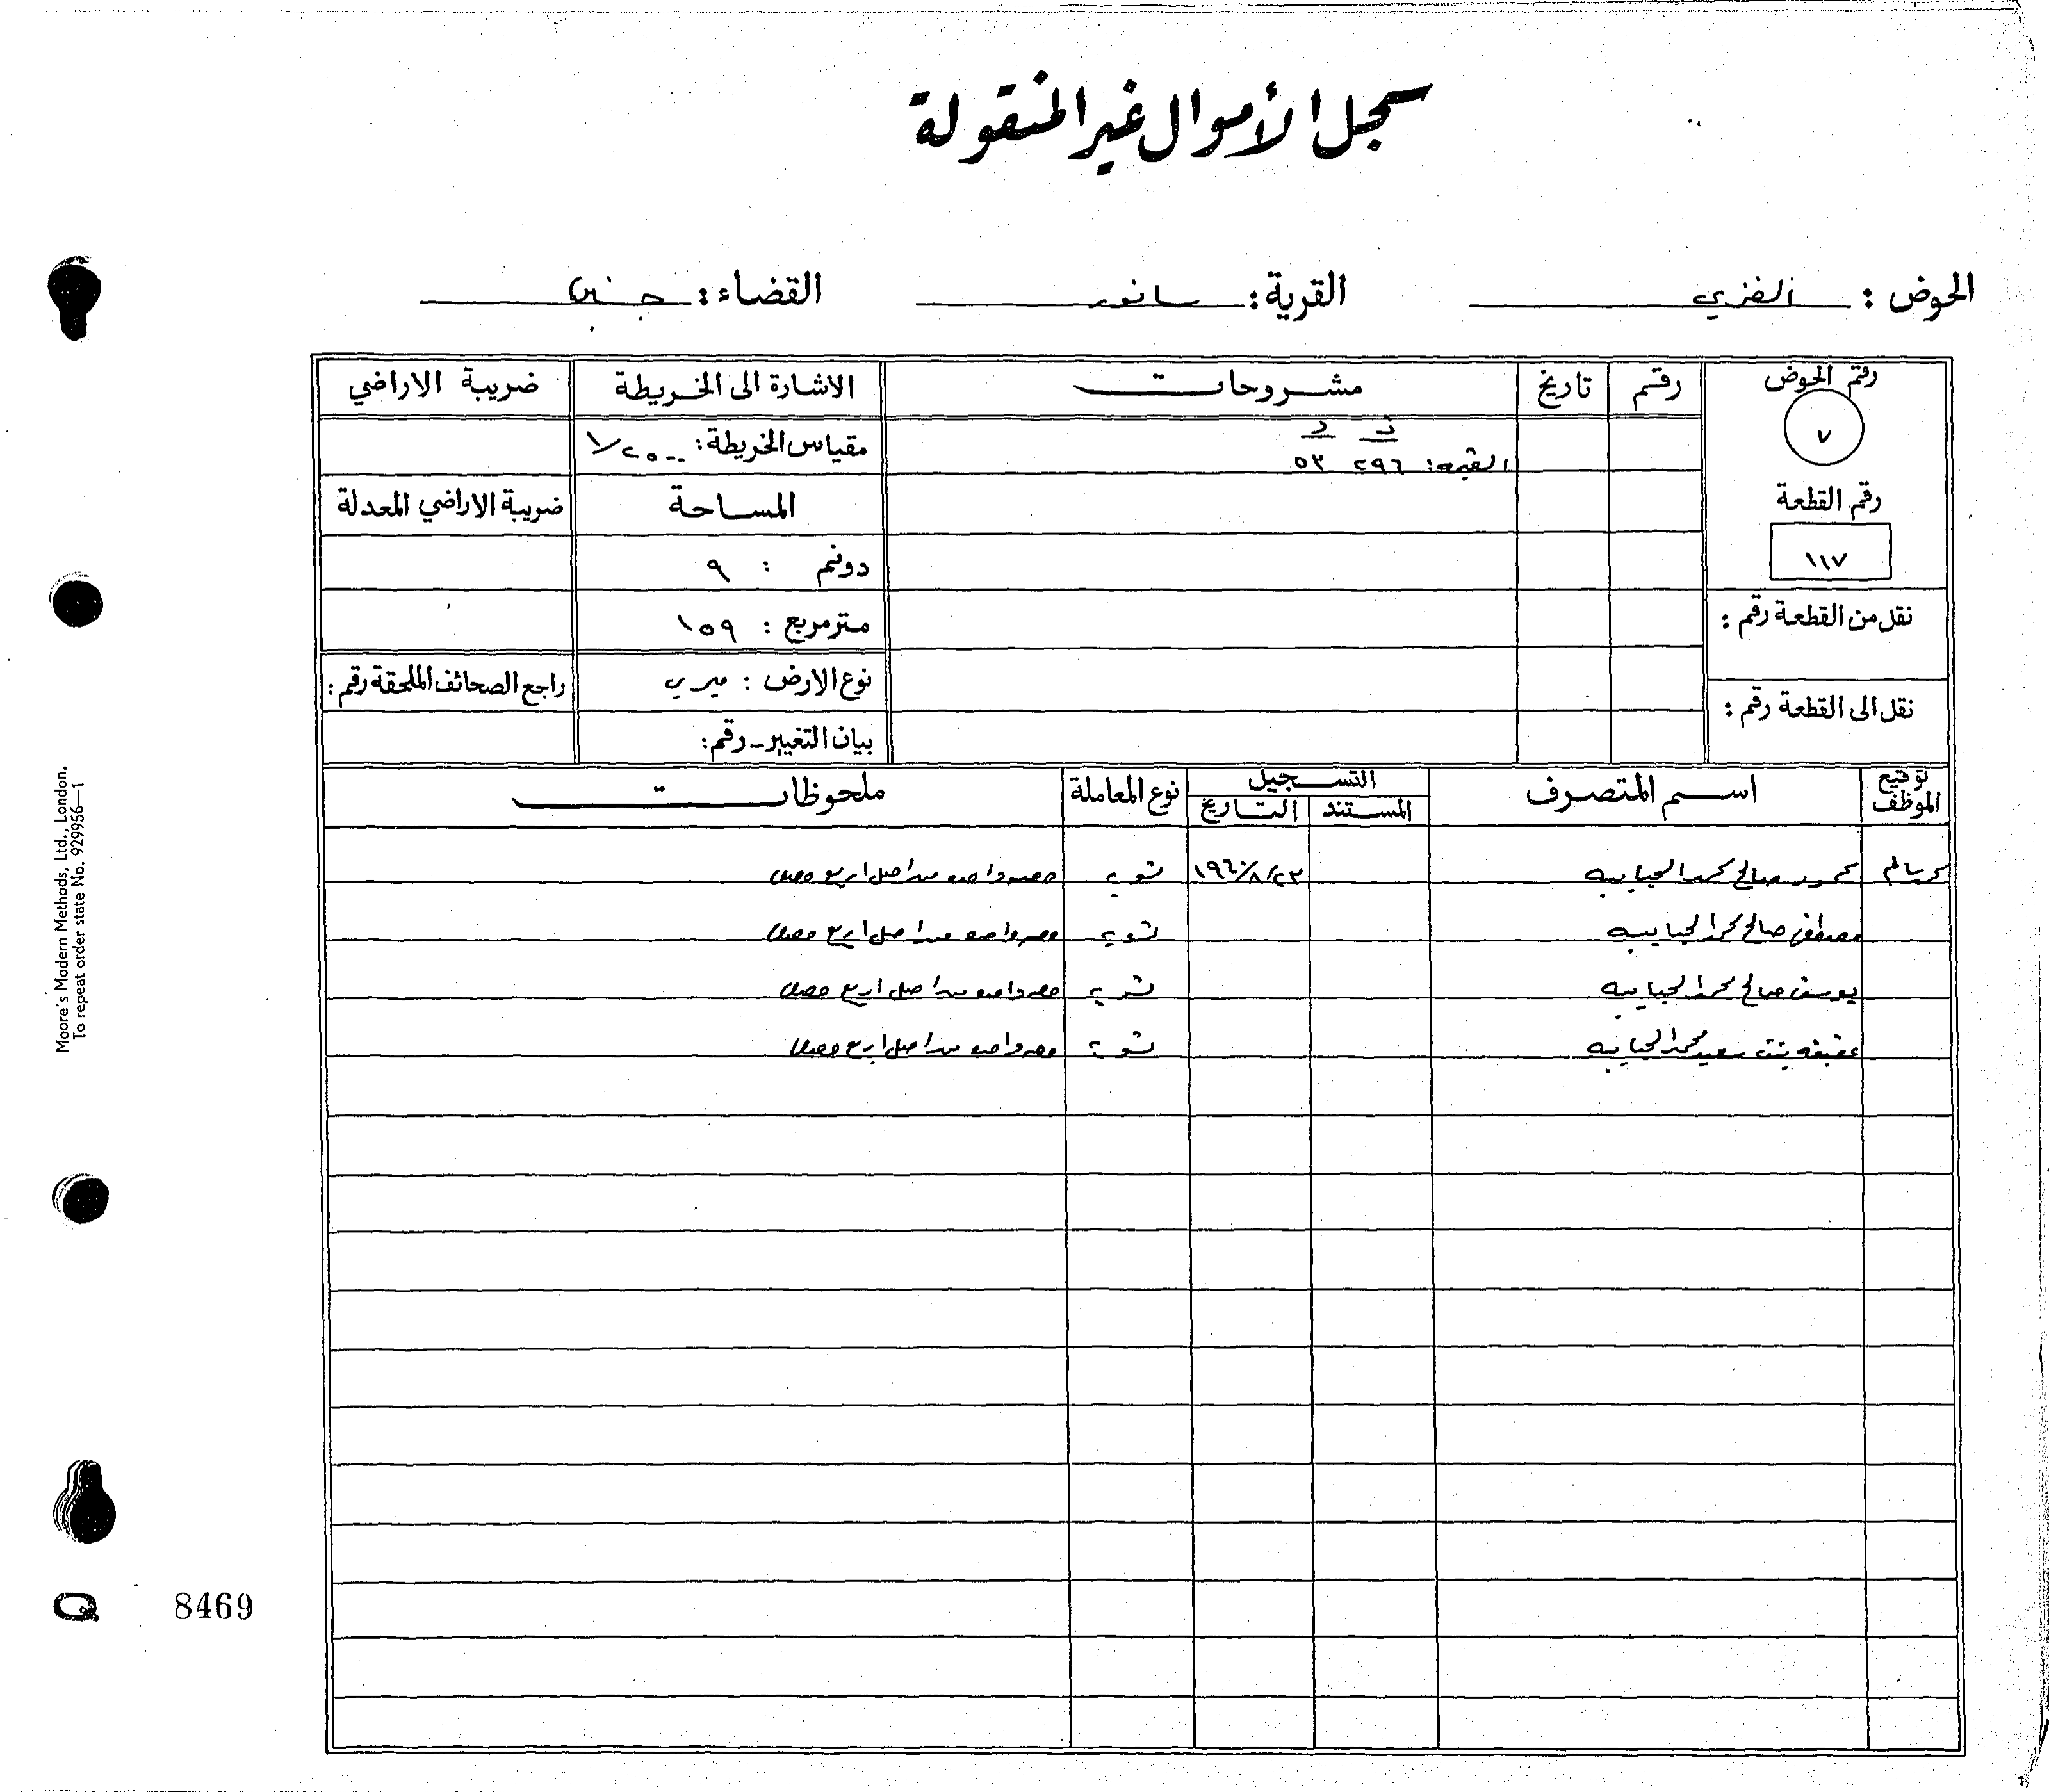 سجل الأموال غير المنقولة
الحوض : الغزي القرية: سانور القضاء: جنين
رقم الحوض رقم تاريخ مشروحات الاشارة الى الخريطة ضريبة الاراضي
٧ القيمه: ٢٩٦ ٥٣ مقياس الخريطة: ١/٢٥٠٠
رقم القطعة المساحة ضريبة الاراضي المعدلة
١١٧ دونم : ٩
نقل من القطعة رقم : متر مربع : ١٥٩
نوع الارض : ميري راجع الصحائف الملحقة رقم :
نقل الى القطعة رقم : بيان التغيير - رقم:
توقيع الموظف اسم المتصرف التسجيل نوع المعاملة ملحوظات
المستند التاريخ
محمود صالح محمد الحبايبه ١٩٦٠/٨/٢٣ تسويه حصه واحده من اصل اربع حصص
مصطفى صالح محمد الحبايبه تسويه حصه واحده من اصل اربع حصص
يوسف صالح محمد الحبايبه تسويه حصه واحده من اصل اربع حصص
عفيفه بنت سعيد محمد الحبايبه تسويه حصه واحده من اصل اربع حصص
Moore's Modern Methods, Ltd., London.
To repeat order state No. 929956—1
Q 8469